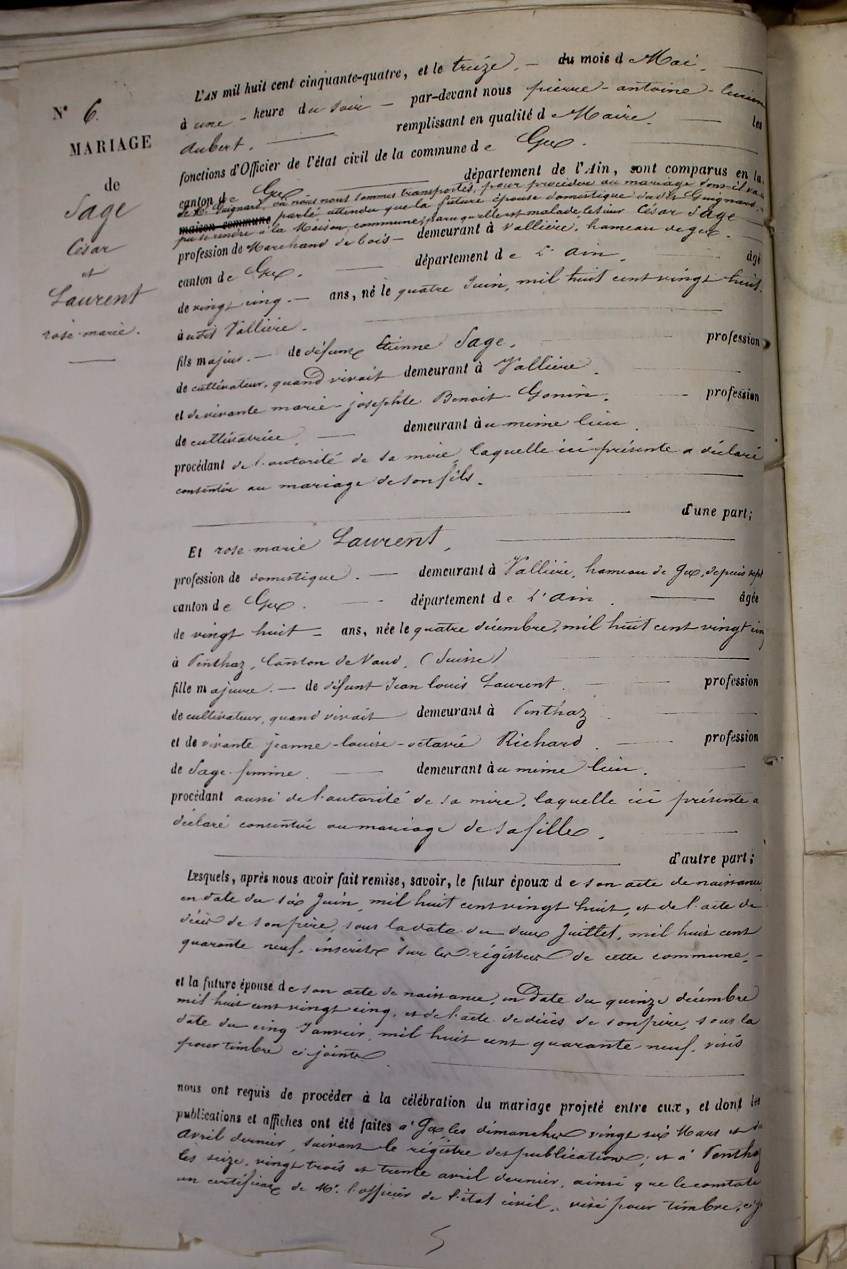 N° 6.
MARIAGE
de
Sage
César
et
Laurent
rose-marie.
L'AN mil huit cent cinquante-quatre, et le treize. — du mois de Mai. —
à une — heure du soir — par-devant nous pierre-antoine-lucien
aubert. — remplissant en qualité de Maire. — les
fonctions d'Officier de l'état civil de la commune de Gex.
canton de Gex — département de l'Ain, sont comparus en la
de Guignard, où nous nous sommes transportés, pour procéder au mariage dont il va
maison commune parlé, attendu que la future épouse domestique Guignard
se rendre à la Maison commune, parcequ'elle est malade, le sieur César Sage
profession de Marchand de bois — demeurant à Vallière, hameau de gex. —
canton de Gex. — département de L'ain. — âgé
de vingt cinq — ans, né le quatre Juin, mil huit cent vingt huit.
audit Vallière.
fils majeur. — de défunt Etienne Sage. — profession
de cultivateur, quand vivait demeurant à Vallière.
et de vivante marie-josephte Benoit-Gonin. — profession
de cultivatrice. — demeurant au meme lieu.
procédant de l'autorité de sa mère, laquelle ici présente a déclaré
consentir au mariage de son fils. —
d'une part;
Et rose-marie Laurent. —
profession de domestique. — demeurant à Vallière, hameau de Gex, depuis sept
canton de Gex. — département de L'ain. — âgée
de vingt huit — ans, née le quatre décembre, mil huit cent vingt cinq
à Penthaz, Canton de Vaud, (Suisse)
fille majeure. — de défunt Jean Louis Laurent. — profession
de cultivateur, quand vivait demeurant à Penthaz
et de vivante jeanne-louise-octavie Richard. — profession
de Sage-femme. — demeurant au meme lieu.
procédant aussi de l'autorité de sa mère, laquelle ici présente a
déclaré consentir au mariage de sa fille.
d'autre part;
Lesquels, après nous avoir fait remise, savoir, le futur époux de son acte de naissance,
en date du six Juin, mil huit cent vingt huit, et de l'acte de
décès de son père, sous la date du deux Juillet, mil huit cent
quarante neuf, inscrits sur les régistres de cette commune. —
et la future épouse de son acte de naissance, en Date du quinze décembre
mil huit cent vingt cinq, et de l'acte de décès de son père, sous la
date du cinq Janvier, mil huit cent quarante neuf, visés
pour timbre ci-joints
nous ont requis de procéder à la célébration du mariage projeté entre eux, et dont les
publications et affiches ont été faites à Gex, les dimanches vingt six Mars et
avril dernier, suivant le régistre des publications; et à Penthaz
les seize, vingt trois et trente avril dernier, ainsi que le constate
un certificat de Mr. l'officier de l'état civil, visé pour timbre,